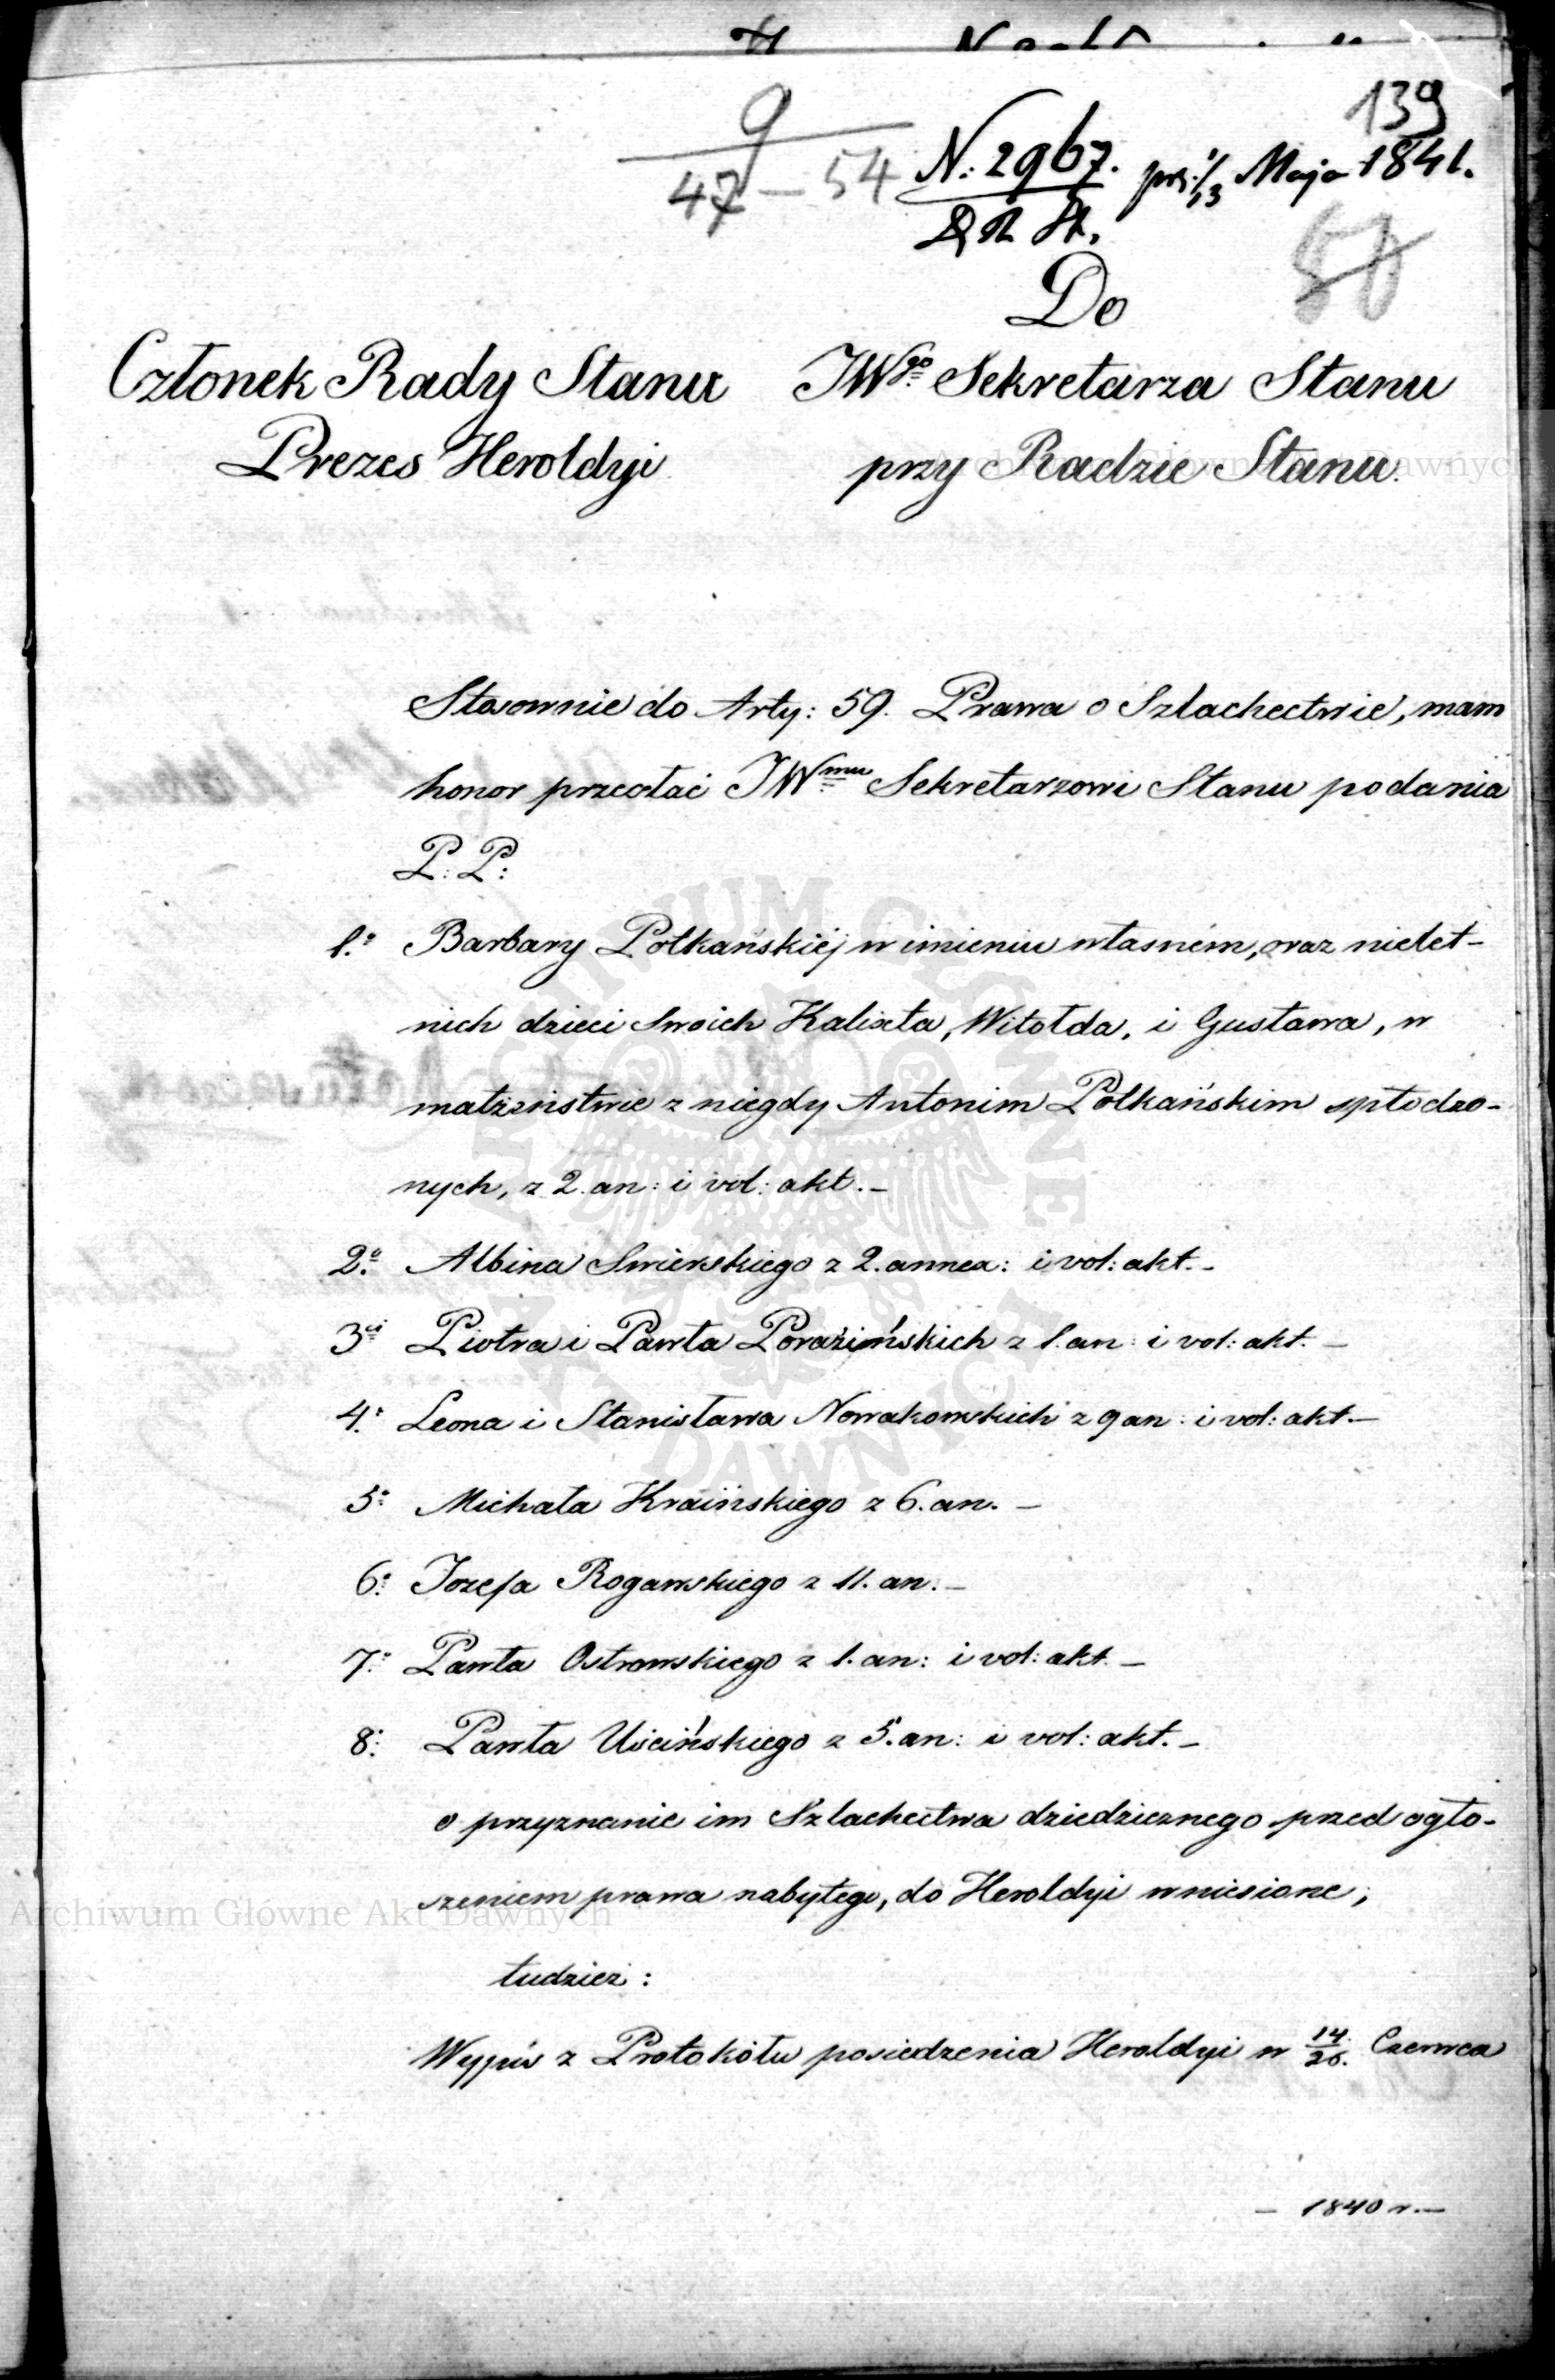 139
9
47 — 54
N: 2967. prz: 1/13 Maja 1841.
50
Do
Członek Rady Stanu JWgo Sekretarza Stanu
Prezes Heroldyi przy Radzie Stanu.
Stosownie do Arty: 59. Prawa o Szlachectwie, mam
honor przesłać JWmu Sekretarzowi Stanu podania
P: P:
1.o Barbary Połkańskiéj w imieniu własném, oraz nielet-
nich dzieci swoich Kalixta, Witolda, i Gustawa, w
małżeństwie z niegdy Antonim Połkańskim spłodzo-
nych, z 2. an: i vol: akt. —
2.o Albina Swierskiego z 2. annex: i vol: akt. —
3o Piotra i Pawła Poraźińskich z 1. an: i vol: akt. —
4.o Leona i Stanisława Nowakowskich z 9 an: i vol: akt —
5.o Michała Kraińskiego z 6. an. —
6.o Jozefa Rogawskiego z 11. an: —
7.o Pawła Ostrowskiego z 1. an: i vol: akt —
8.o Pawła Uścińskiego z 5. an: i vol: akt. —
o przyznanie im Szlachectwa dziedzicznego przed ogło-
szeniem prawa nabytego, do Heroldyi wniesione;
tudzież:
Wypis z Protokółu posiedzenia Heroldyi w 14/26. Czerwca
— 1840 r. —
Archiwum Główne Akt Dawnych
ARCHIWUM GŁÓWNE AKT DAWNYCH